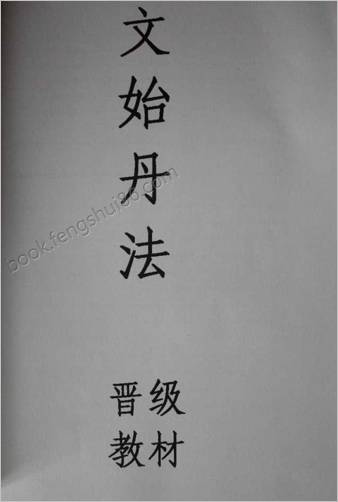 文始丹法
晋级
教材
book.fengshui86.com